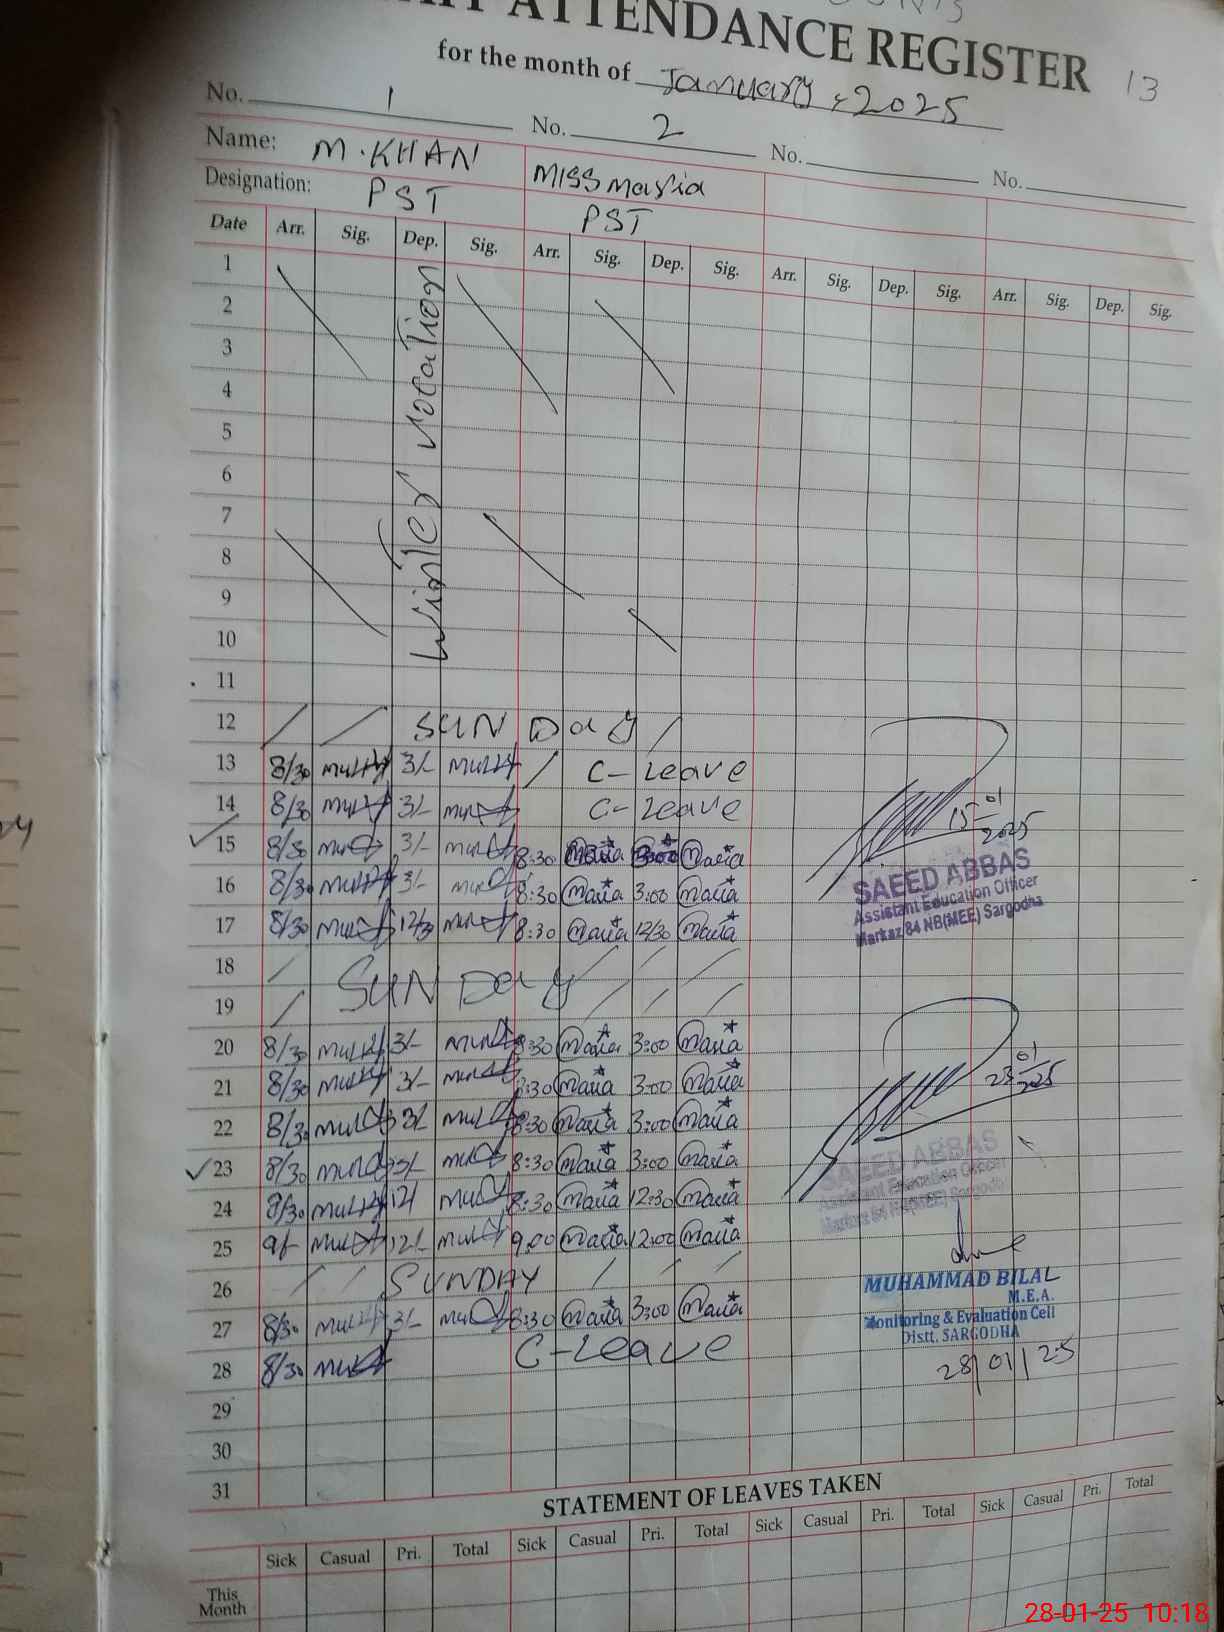 ATTENDANCE REGISTER 13
for the month of January, 2025
No. 1 No. 2 No. No.
Name: M.KHAN MISS Maria
Designation: PST PST
Date Arr. Sig. Dep. Sig. Arr. Sig. Dep. Sig. Arr. Sig. Dep. Sig. Arr. Sig. Dep. Sig.
Winter vocation
1
2
3
4
5
6
7
8
9
10
11
12 SUN Day
13 8/30 3/- C-Leave
14 8/30 3/- C-Leave
15 8/30 3/- 8:30 Maria 3:00 Maria
16 8/30 3/- 8:30 Maria 3:00 Maria
17 8/30 12/30 8:30 Maria 12/30 Maria
18 SUN Day
19
20 8/30 3/- 8:30 Maria 3:00 Maria
21 8/30 3/- 8:30 Maria 3:00 Maria
22 8/30 3/- 8:30 Maria 3:00 Maria
23 8/30 3/- 8:30 Maria 3:00 Maria
24 8/30 12/ 8:30 Maria 12:30 Maria
25 9/- 12/- 9:00 Maria 12:00 Maria
26 SUNDAY
27 8/30 3/- 8:30 Maria 3:00 Maria
28 8/30 C-Leave
29
30
31
15-01
2025
SAEED ABBAS
Assistant Education Officer
Markaz 84 NB(MEE) Sargodha
23-01
2025
SAEED ABBAS
Assistant Education Officer
Markaz 84 NB(MEE) Sargodha
MUHAMMAD BILAL
M.E.A.
Monitoring & Evaluation Cell
Distt. SARGODHA
28/01/25
STATEMENT OF LEAVES TAKEN
Sick Casual Pri. Total Sick Casual Pri. Total Sick Casual Pri. Total Sick Casual Pri. Total
This
Month
28-01-25 10:18